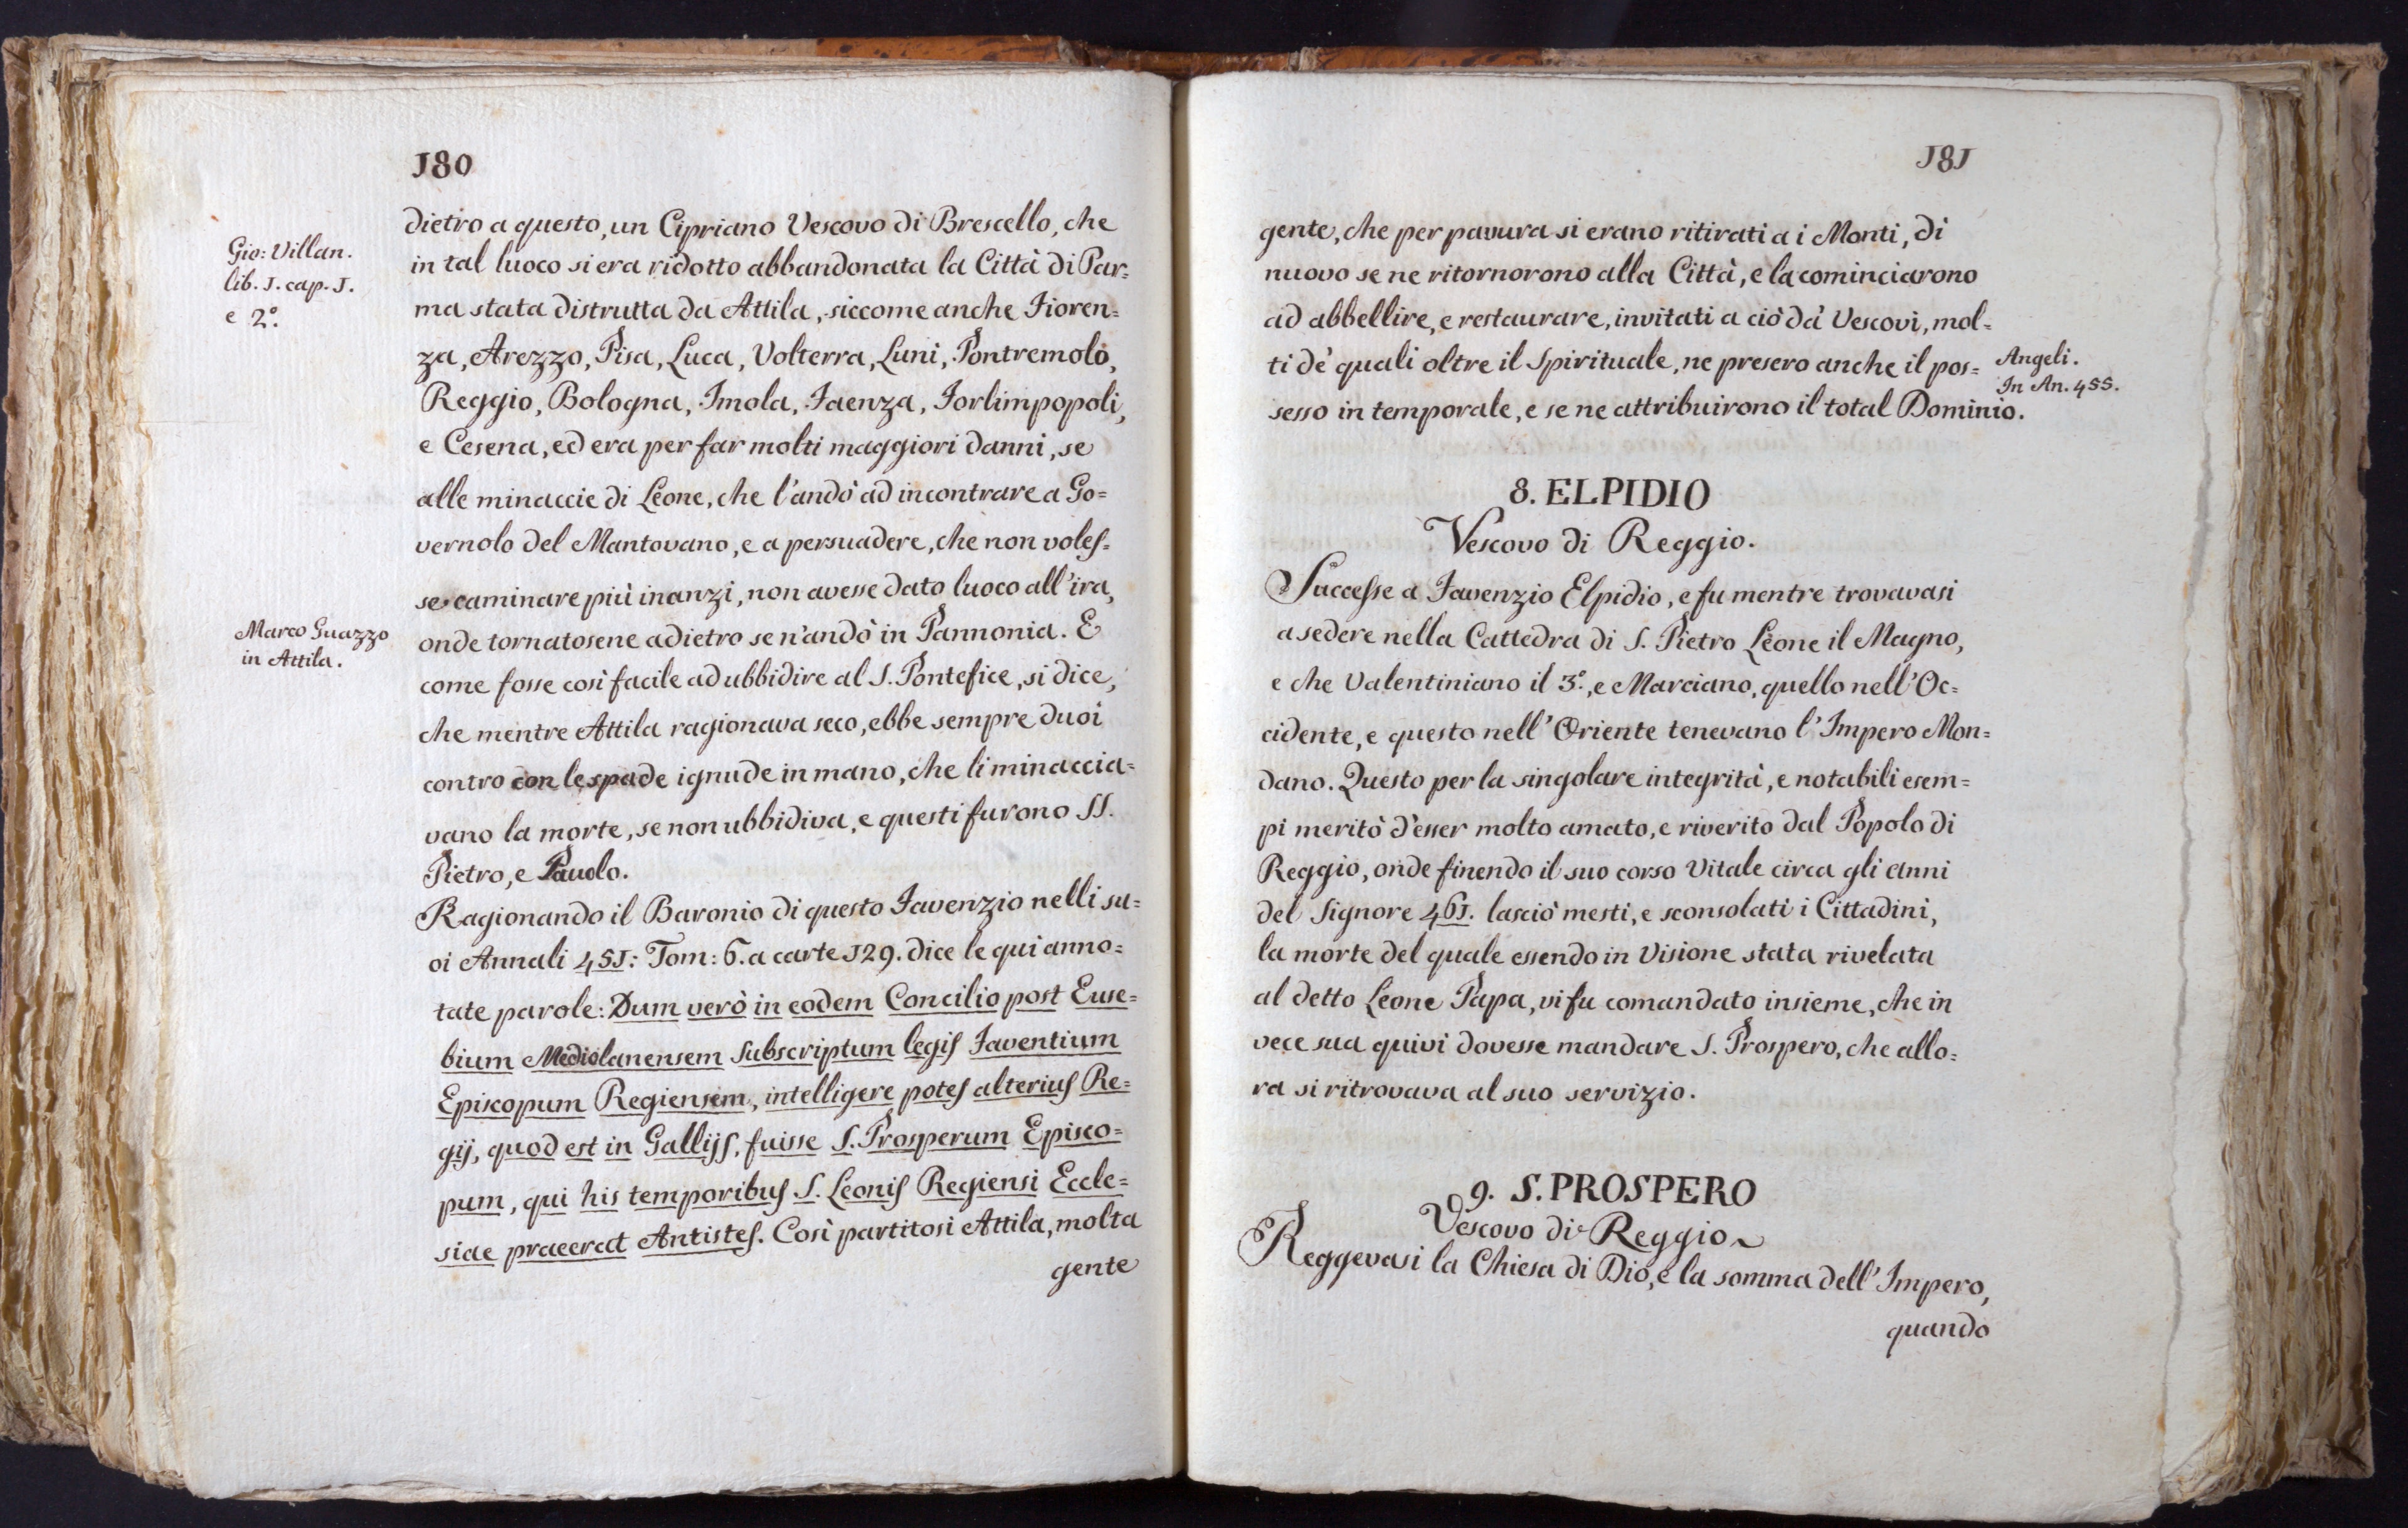 180
Gio: Villan.
lib. 1. cap. 1.
e 2º.
dietro a questo, un Cipriano Vescovo di Brescello, che
in tal luoco si era ridotto abbandonata la Città di Par=
ma stata distrutta da Attila, siccome anche Fioren=
za, Arezzo, Pisa, Luca, Volterra, Luni, Pontremolo,
Reggio, Bologna, Imola, Faenza, Forlimpopoli,
e Cesena, ed era per far molti maggiori danni, se
alle minaccie di Leone, che l'andò ad incontrare a Go=
vernolo del Mantovano, e a persuadere, che non voles=
se caminare più inanzi, non avesse dato luoco all'ira,
Marco Guazzo
in Attila.
onde tornatosene adietro se n'andò in Pannonia. E
come fosse così facile ad ubbidire al S. Pontefice, si dice,
che mentre Attila ragionava seco, ebbe sempre duoi
contro con le spade ignude in mano, che li minaccia=
vano la morte, se non ubbidiva, e questi furono SS.
Pietro, e Pauolo.
Ragionando il Baronio di questo Favenzio nelli su=
oi Annali 451: Tom: 6. a carte 129. dice le qui anno=
tate parole: Dum verò in eodem Concilio post Euse=
bium Mediolanensem subscriptum legis Faventium
Episcopum Regiensem, intelligere potes alterius Re=
gij, quod est in Gallijs, fuisse S. Prosperum Episco=
pum, qui his temporibus S. Leonis Regiensi Eccle=
siae praeerat Antistes. Così partitosi Attila, molta
gente
181
gente, che per pavura si erano ritirati a i Monti, di
nuovo se ne ritornorono alla Città, e la cominciarono
ad abbellire, e restaurare, invitati a ciò da' Vescovi, mol=
ti de' quali oltre il Spirituale, ne presero anche il pos=
Angeli.
In An. 455.
sesso in temporale, e se ne attribuirono il total Dominio.
8. ELPIDIO
Vescovo di Reggio.
Successe a Favenzio Elpidio, e fu mentre trovavasi
a sedere nella Cattedra di S. Pietro Leone il Magno,
e che Valentiniano il 3º., e Marciano, quello nell'Oc=
cidente, e questo nell'Oriente tenevano l'Impero Mon=
dano. Questo per la singolare integrità, e notabili esem=
pi meritò d'esser molto amato, e riverito dal Popolo di
Reggio, onde finendo il suo corso Vitale circa gli anni
del Signore 461. lasciò mesti, e sconsolati i Cittadini,
la morte del quale essendo in Visione stata rivelata
al detto Leone Papa, vi fu comandato insieme, che in
vece sua quivi dovesse mandare S. Prospero, che allo=
ra si ritrovava al suo servizio.
9. S. PROSPERO
Vescovo di Reggio
Reggevasi la Chiesa di Dio, e la somma dell'Impero,
quando